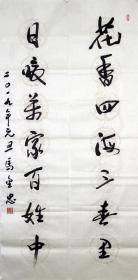 花香四海三春里
日暖万家百姓中
二〇一九年元旦馬金忠